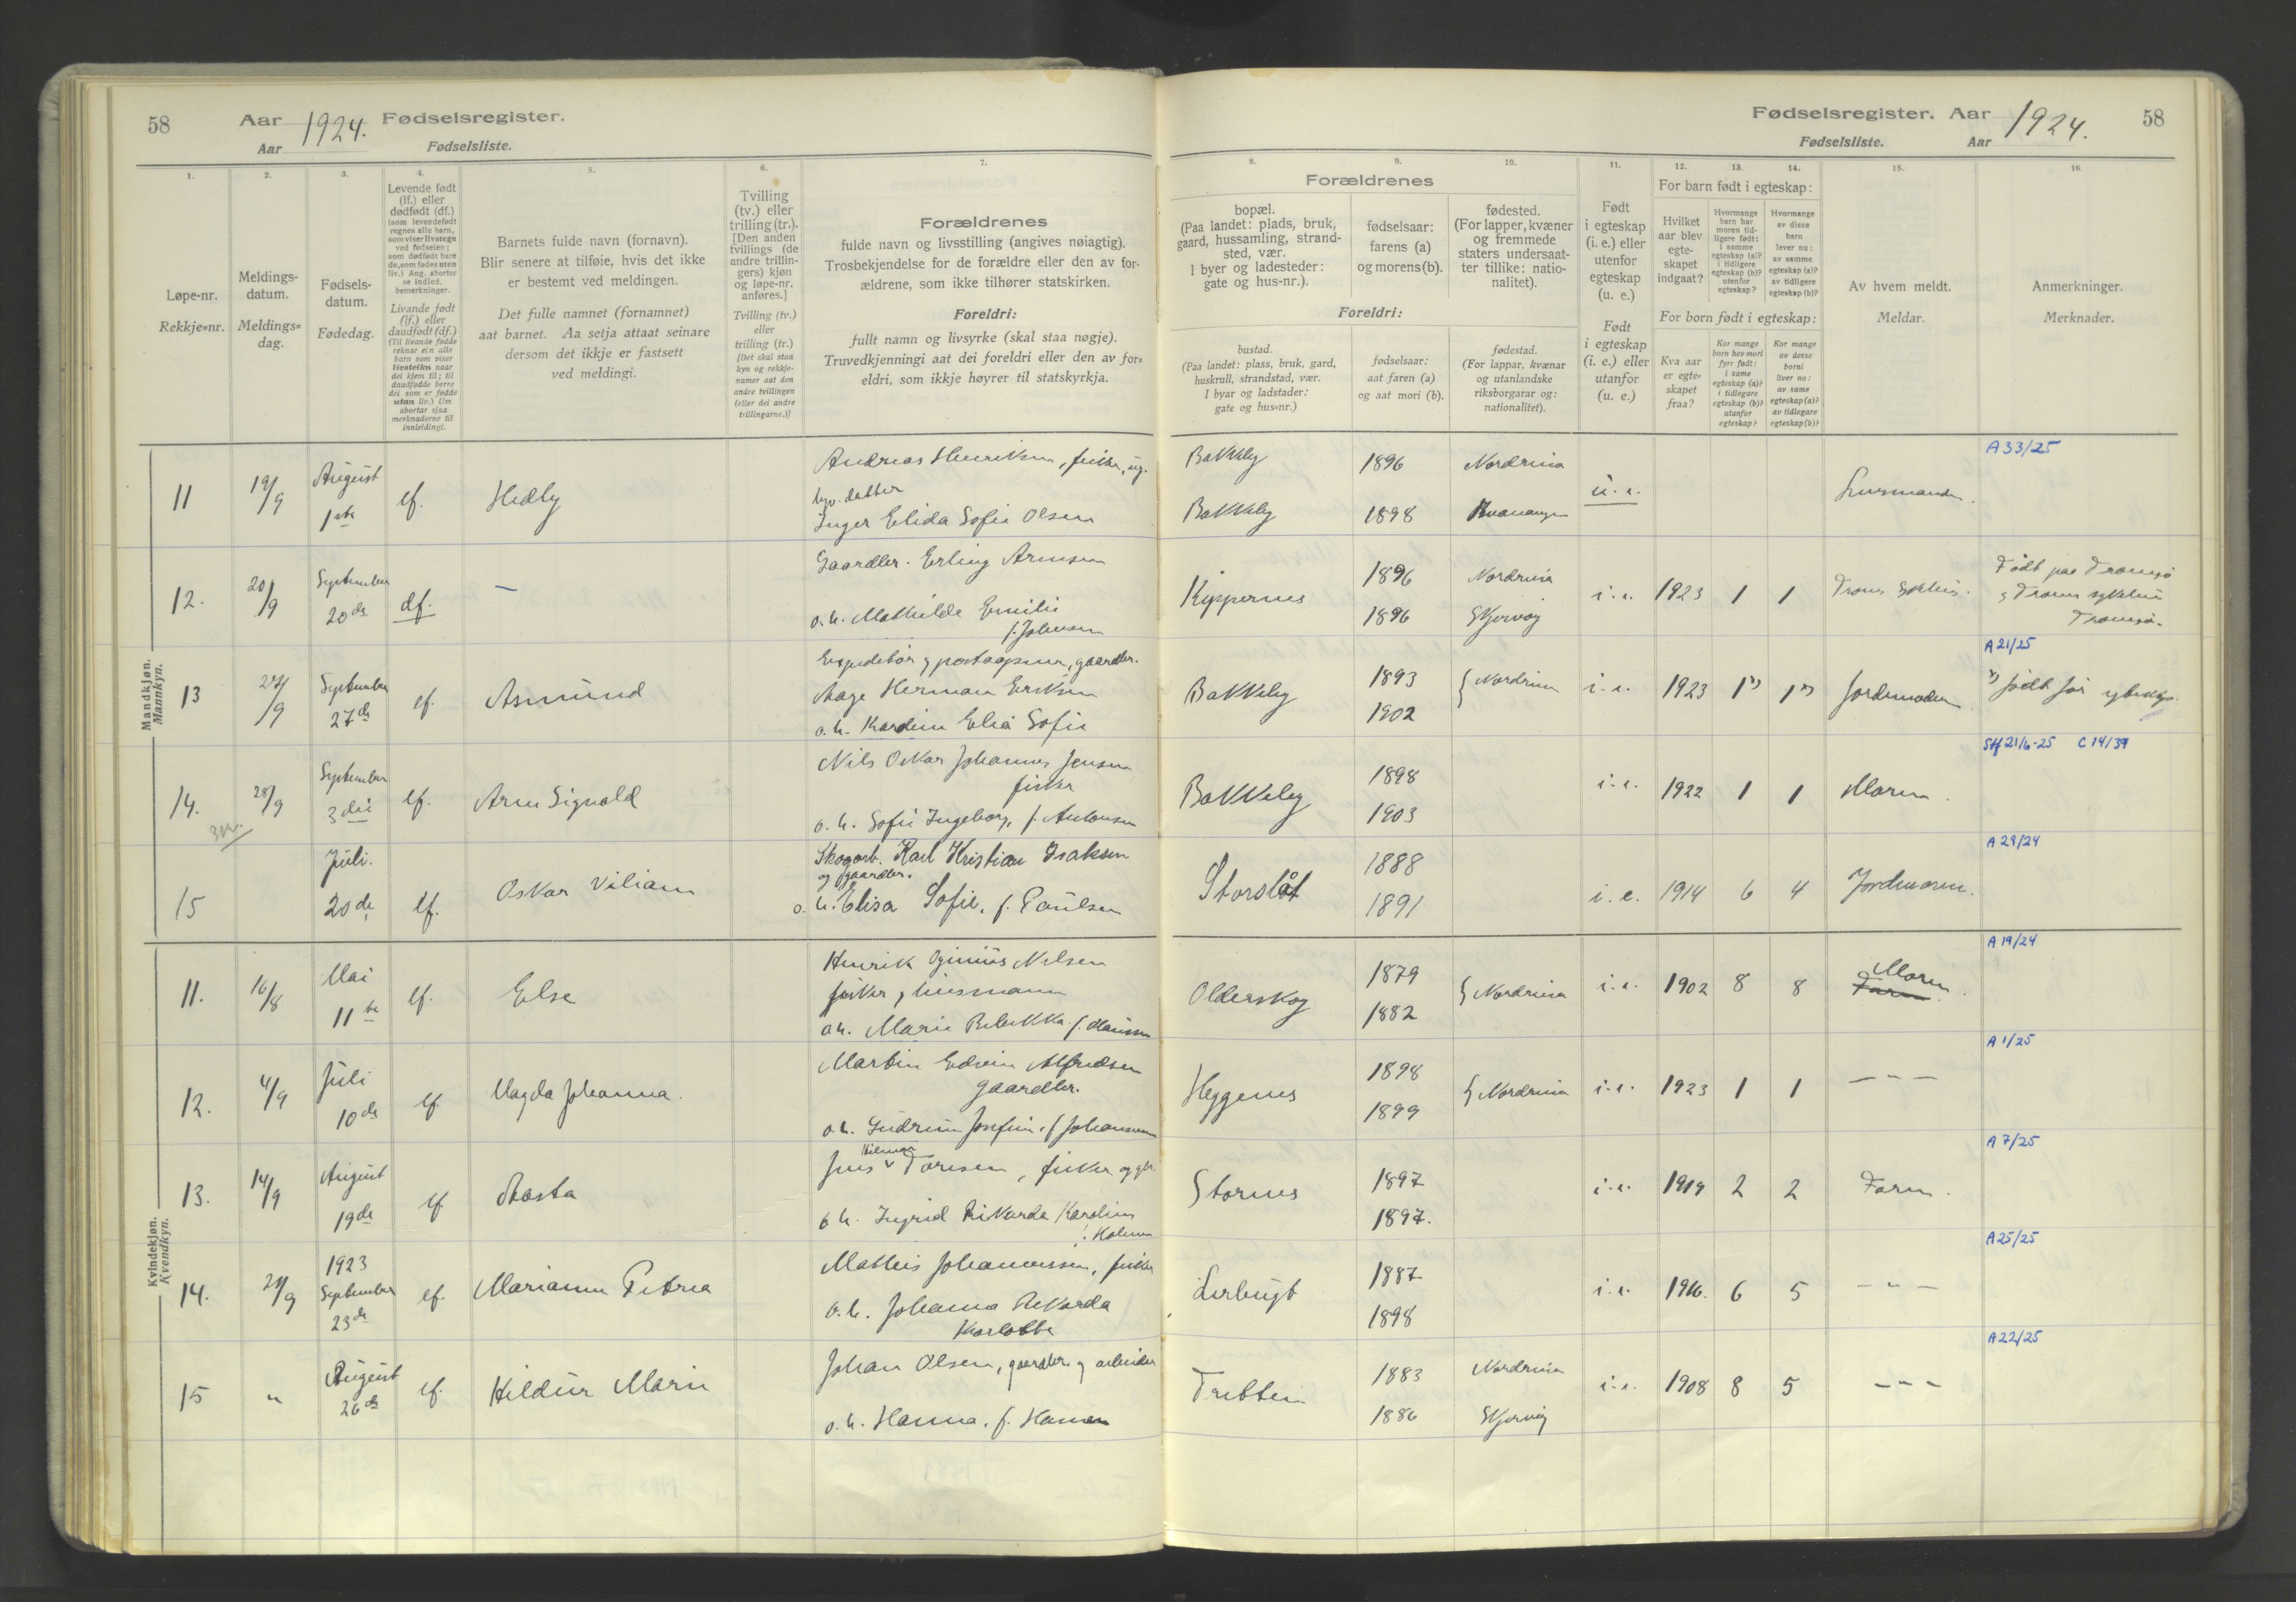 58 Aar 1924. Fødselsregister.
Aar Fødselsliste.
1. 2. 3. 4. 5. 6. 7.
Løpe-nr.
Rekkje=nr.
Meldings-
datum.
Meldings=
dag.
Fødsels-
datum.
Fødedag.
Levende født
(lf.) eller
dødfødt (df.)
(som levendefødt
regnes alle barn,
som viser livstegn
ved fødselen;
som dødfødt bare
de, som fødes uten
liv.) Ang. aborter
se indled.
bemerkninger.
Livande født
(lf.) eller
daudfødt (df.)
(Til livande fødde
reknar ein alle
barn som viser
livsteikn naar
dei kjem til; til
daudfødde berre
dei som er fødde
utan liv.) Um
abortar sjaa
merknaderne til
innleidingi.
Barnets fulde navn (fornavn).
Blir senere at tilføie, hvis det ikke
er bestemt ved meldingen.
Det fulle namnet (fornamnet)
aat barnet. Aa setja attaat seinare
dersom det ikkje er fastsett
ved meldingi.
Tvilling
(tv.) eller
trilling (tr.).
[Den anden
tvillings (de
andre trillin-
gers) kjøn
og løpe-nr.
anføres.]
Tvilling (tv.)
eller
trilling (tr.)
[Det skal staa
kyn og rekkje-
numer aat den
andre tvillingen
(eller dei andre
trillingarne.)]
Forældrenes
fulde navn og livsstilling (angives nøiagtig).
Trosbekjendelse for de forældre eller den av for-
ældrene, som ikke tilhører statskirken.
Foreldri:
fullt namn og livsyrke (skal staa nøgje).
Truvedkjenningi aat dei foreldri eller den av for=
eldri, som ikkje høyrer til statskyrkja.
Mandkjøn.
Mannkyn.
11 19/9 August 1ste lf. Hedly
Andreas Henriksen, fisker, ug.
Inger Elida Sofie Olsen
12. 20/9 September 20de df. —
Gaardbr. Erling Arnesen
o. h. Mathilde Emilie
f. Johnsen
13 27/9 September 27de lf. Asmund
Expeditør og postaapner, gaardbr.
Aage Herman Eriksen
o. h. Karoline Elia Sofie
14. 28/9 September 3die lf. Arne Sigvald
Nils Oskar Johannes Jensen
fisker
o. h. Sofie Ingeborg, f. Antonsen
15 Juli. 20de lf. Oskar Viliam
Skogarb. Karl Kristian Isaksen
og gaardbr.
o. h. Elisa Sofie, f. Paulsen
Kvindekjøn.
Kvendkyn.
11. 16/8 Mai 11te lf. Else
Henrik Nilsen
fisker, husmann
o. h. Marie Rebekka f. Hansen
12. 4/9 Juli 10de lf. Magda Johanna.
Martin Edvin Alfredsen
gaardbr.
o. h. Gudrun Josefine, f. Johansen
13. 14/9 August 19de lf Aasta
Hilmar
Jens Toresen, fisker og gbr.
o h. Ingrid Rikarda Karoline
14. 21/9 1923 September 23de lf. Marianne Petrea
Mathis Johannessen, fisker
o. h. Johanna Rikarda
Karlotte
15 " August 26de lf. Hildur Marie
Johan Olsen, gaardbr. og arbeider
o. h. Hanna, f. Hansen
Fødselsregister. Aar 1924. 58
Fødselsliste. Aar
8. 9. 10. 11. 12. 13. 14. 15. 16.
Forældrenes
bopæl.
(Paa landet: plads, bruk,
gaard, hussamling, strand-
sted, vær.
I byer og ladesteder:
gate og hus-nr.).
fødselsaar:
farens (a)
og morens (b).
fødested.
(For lapper, kvæner
og fremmede
staters undersaat-
ter tillike: natio-
nalitet).
Foreldri:
bustad.
(Paa landet: plass, bruk, gard,
huskrull, strandstad, vær.
I byar og ladstader:
gate og hus=nr.)
fødselsaar:
aat faren (a)
og aat mori (b).
fødestad.
(For lappar, kvænar
og utanlandske
riksborgarar og:
nationalitet).
Født
i egteskap
(i. e.) eller
utenfor
egteskap
(u. e.)
Født
i egteskap
(i. e.) eller
utanfor
(u. e.)
For barn født i egteskap:
Hvilket
aar blev
egte-
skapet
indgaat?
Hvormange
barn har
moren tid-
ligere født:
i samme
egteskap (a)?
i tidligere
egteskap (b)?
utenfor
egteskap?
Hvormange
av disse
barn
lever nu:
av samme
egteskap (a)?
av tidligere
egteskap (b)?
For born født i egteskap:
Kva aar
er egte-
skapet
fraa?
Kor mange
born hev mori
fyrr født:
i same
egteskap (a)?
i tidlegare
egteskap (b)?
utanfor
egteskap?
Kor mange
av desse
borni
liver no:
av same
egteskap (a)?
av tidlegare
egteskap (b)?
Av hvem meldt.
Meldar.
Anmerkninger.
Merknader.
A 33/25
Bakkeby 1896 Nordreisa
Bakkeby 1898 Kvænangen u. e.
Kippernes 1896 Nordreisa i. e. 1923 1 1 Troms sykehus.
1896 Skjervøy
Født paa Tromsø
Troms sykehus
Tromsø.
A 21/25
Bakkeby 1893 Nordreisa i. e. 1923 1*) 1*) Jordmoder
1902
*) født før egteskap.
Stf 21/6-25 C 14/39
Bakkeby 1898 i. e. 1922 1 1 Moren.
1903
A 29/24
Storslåt 1888 i. e. 1914 6 4 Jordmoren.
1891
A 19/24
Olderskog 1879 Nordreisa i. e. 1902 8 8 Moren
1882 Faren.
A 1/25
Heggenes 1898 Nordreisa i. e. 1923 1 1 — " —
1899
A 7/25
Stornes 1897 i. e. 1919 2 2 Faren.
1897.
A 25/25
Lerbugt 1887 i. e. 1916. 6 5 — " —
1898
A 22/25
Tretten 1883 Nordreisa i. e. 1908 8 5 — " —
1886 Skjervøy